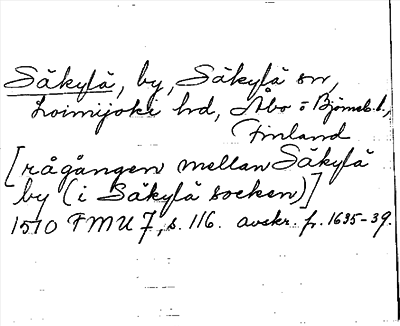 Säkylä, by, Säkylä sn,
Loimijoki hd, Åbo o Björneb. l.,
Finland
[rågången mellan Säkylä
by (i Säkylä socken)]
1510 FMU 7, s. 116. avskr. fr. 1635-39.